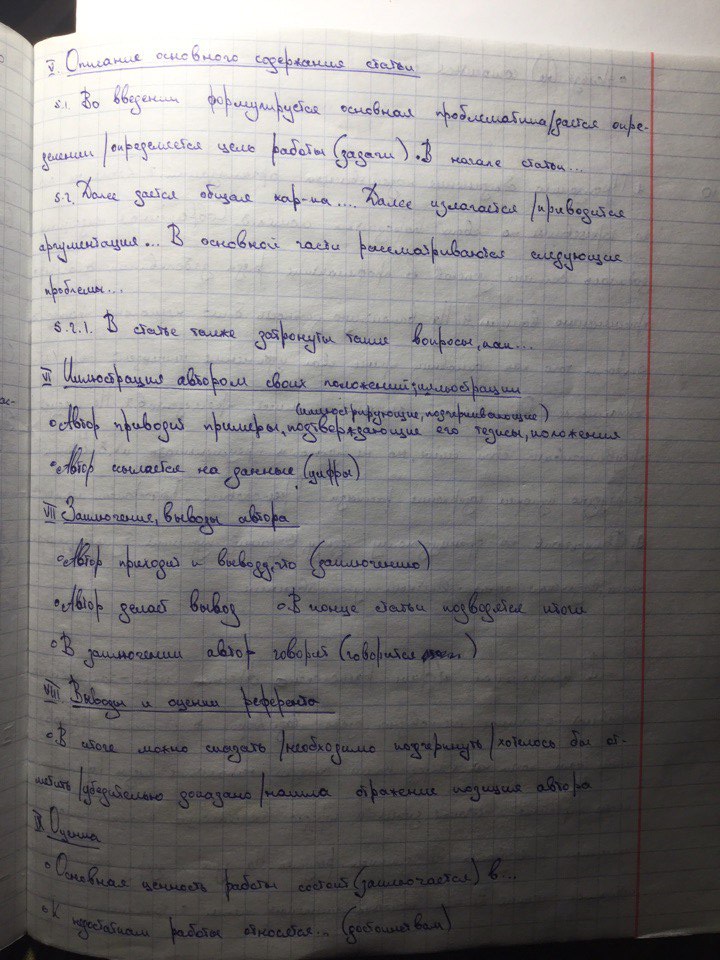 V. Описание основного содержания статьи
5.1. Во введении формулируется основная проблематика/дается опре-
делении/определяется цель работы (задачи). В начале статьи...
5.2. Далее дается общая хар-ка.... Далее излагается/приводится
аргументация... В основной части рассматриваются следующие
проблемы...
5.2.1. В статье также затронуты такие вопросы, как...
VI Иллюстрация автором своих положений; иллюстрации
(иллюстрирующие, подчеркивающие)
Автор приводит примеры, подтверждающие его тезисы, положения
Автор ссылается на данные (цифры)
VII Заключение, выводы автора
Автор приходит к выводу, что (заключению)
Автор делает вывод В конце статьи подводятся итоги
В заключении автор говорит (говорится)
VIII. Выводы и оценки референта
В итоге можно сказать/необходимо подчеркнуть/хотелось бы от-
метить/убедительно доказано/нашла отражение позиция автора
IX Оценка
Основная ценность работы состоит (заключается) в...
К недостаткам работы относятся... (достоинствам)